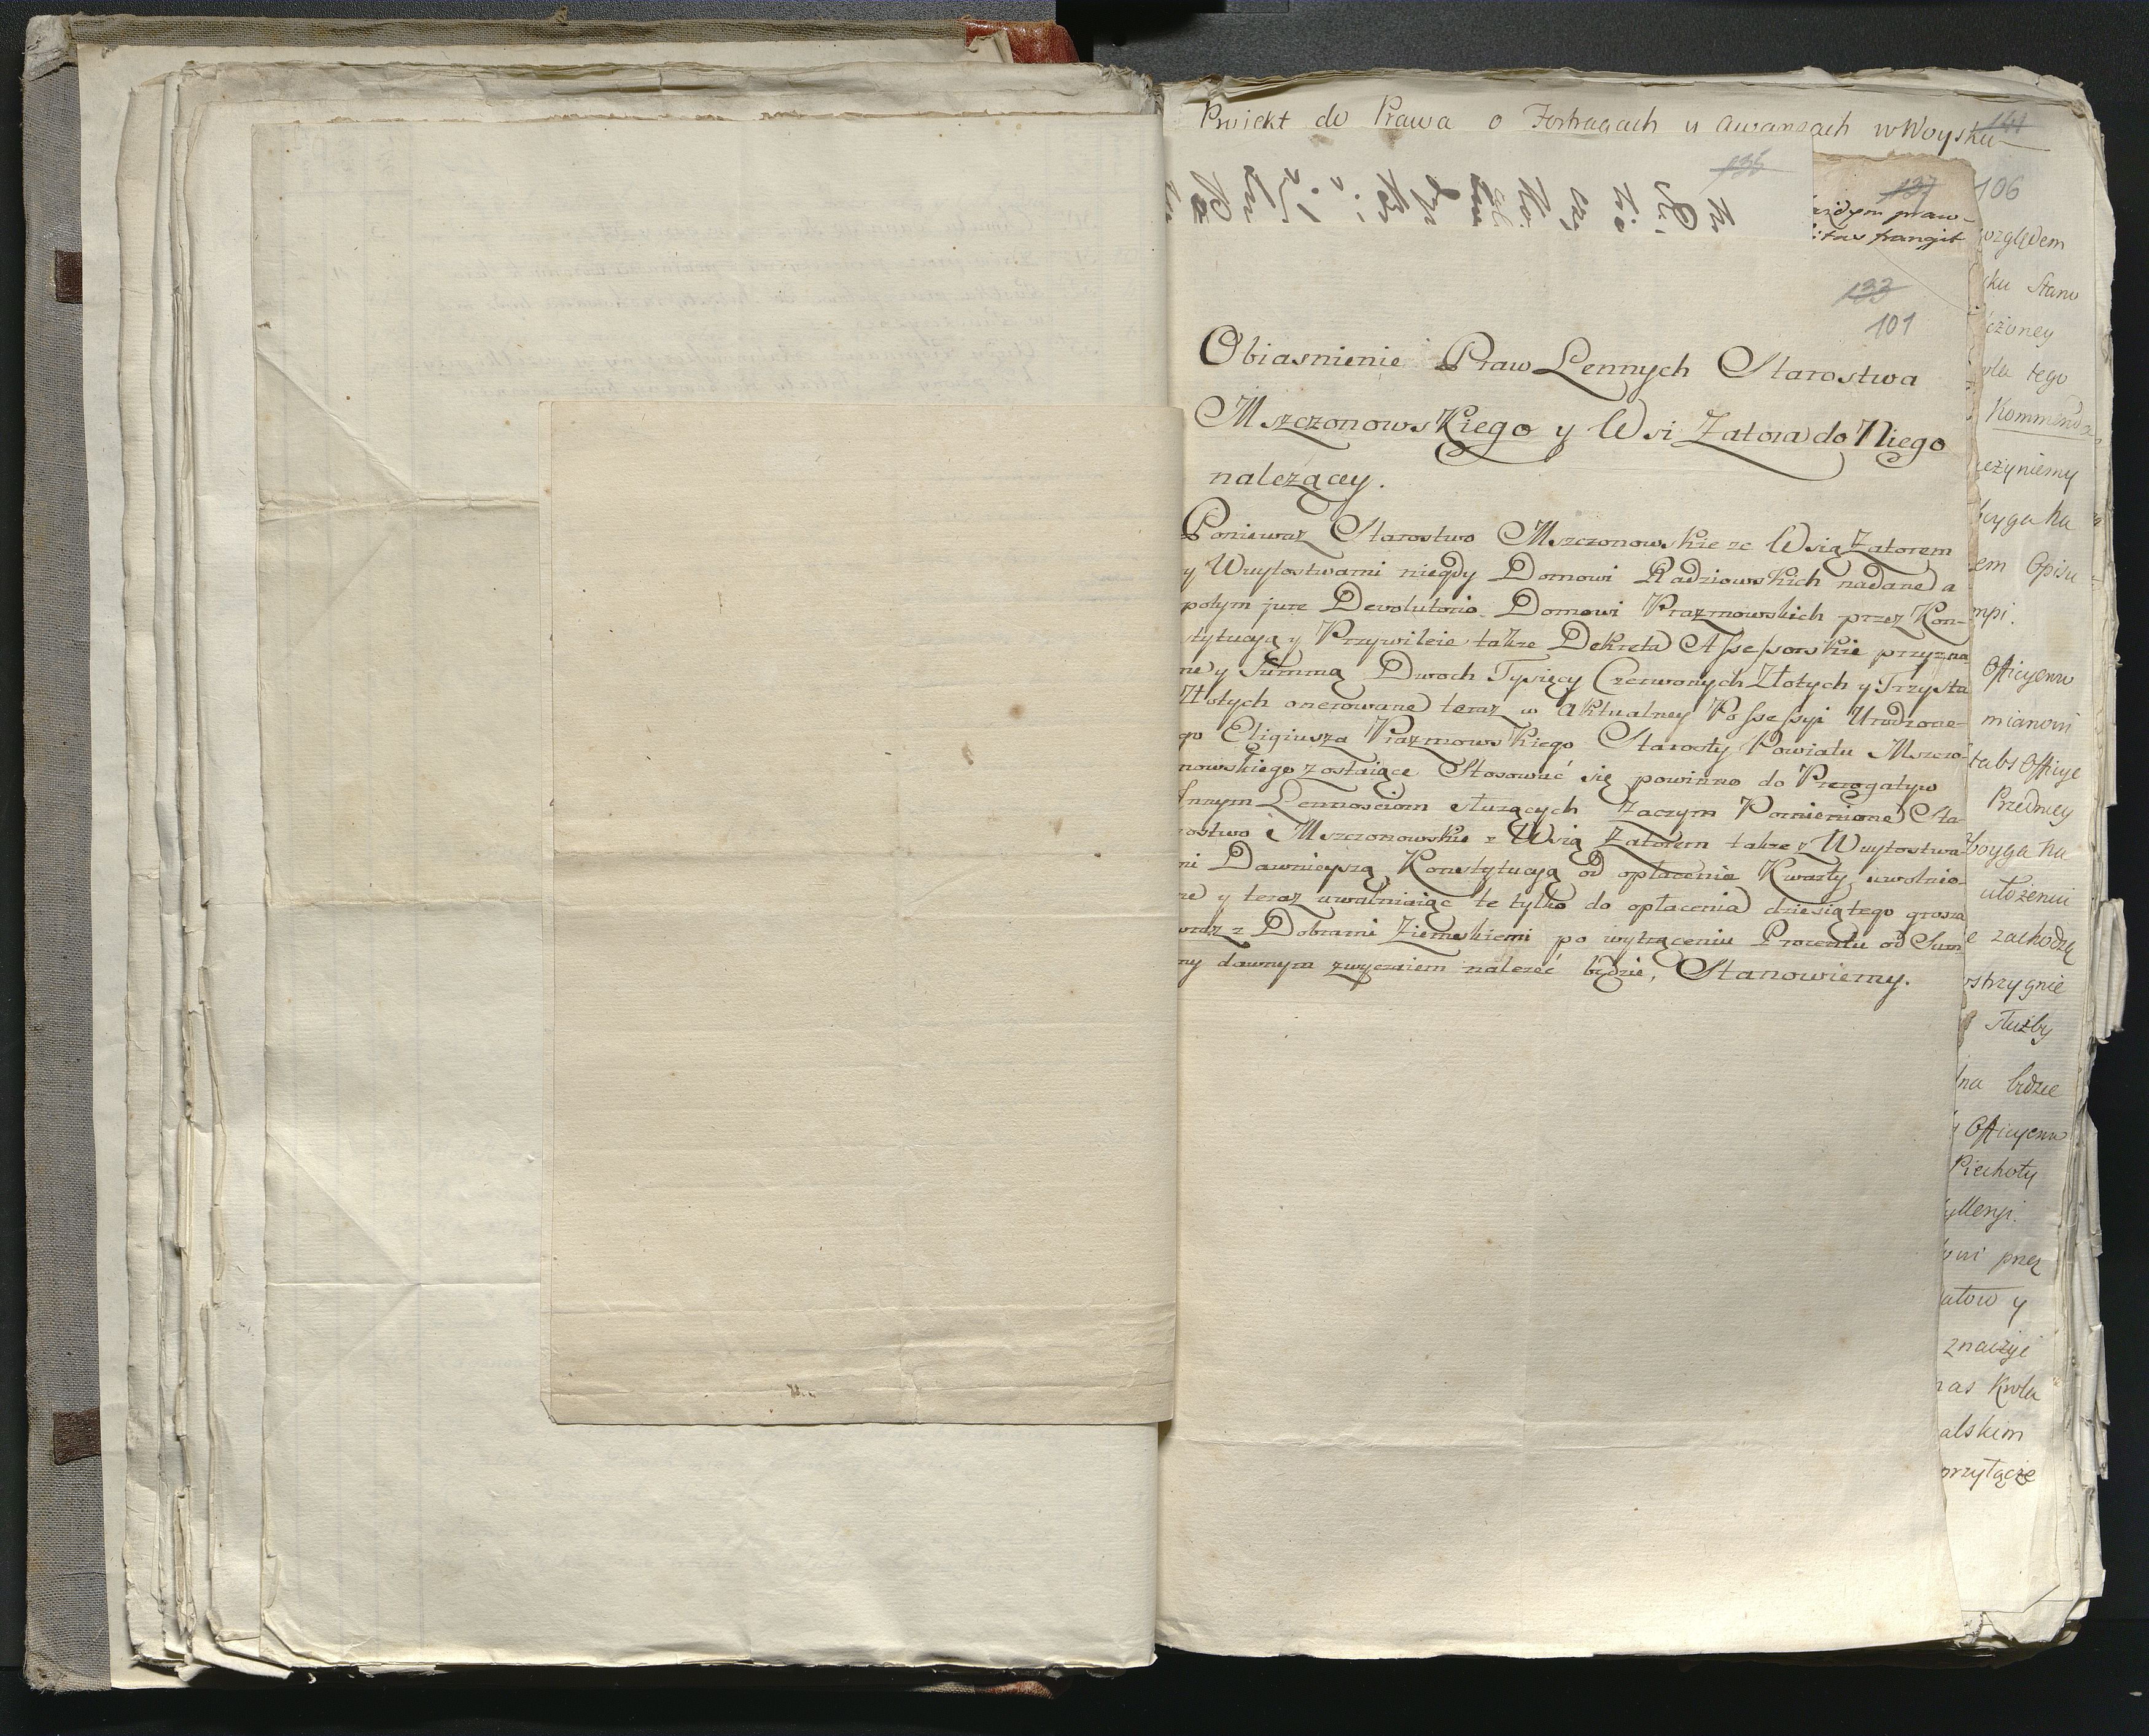 Proiekt do Prawa o Fortragach y Awansach w Woysku
141
135
137
106
ażdym praw-
itas frangit
133
101
Obiasnienie Praw Lennych Starostwa
Mszczonowskiego y Wsi Zatora do Niego
należącey.
Poniewaz Starostwo Mszczonowskie ze Wsią Zatorem
y Wuytostwami niegdy Domowi Radziowskich nadane a
potym jure Devolutorio Domowi Prazmowskich przez Kon-
stytucyą y Przywileie takze Dekreta Assessorskie przyzna
ne y Summą Dwoch Tysięcy Czerwonych Złotych y Trzysta
Złotych onerowane teraz w aktualney Possessyi Urodzone-
go Eligiusza Prazmowskiego Starosty Powiatu Mszczo-
nowskiego zostaiące Stosować się powinno do Prerogatyw
Innym Lennosciom służących Zaczym Pomienione Sta-
rostwo Mszczonowskie z Wsią Zatorem takze z Wuytostwa-
mi Dawnieyszą Konstytucyą od opłacenia Kwarty uwolnio-
ne y teraz uwalniaiąc te tylko do opłacenia dziesiątego grosza
wraz z Dobrami Ziemskiemi po wytrąceniu Procentu od Sum
my dawnym zwyczaiem nalezeć będzie, Stanowiemy.
względem
sku Stanu
czoney
ola tego
Kommend
eżyniemy
boyga ka
em Opisu
mpi.
Officyerw
mianowi
tabs Officye
Przedniey
boyga ka
ułożeniu
e zachodzą
ostrzygnie
służby
dna będzie
Officyerw
Piechoty
yllerji.
owi przez
atow y
znaczyć
nas Krola
alskim
przyłącze